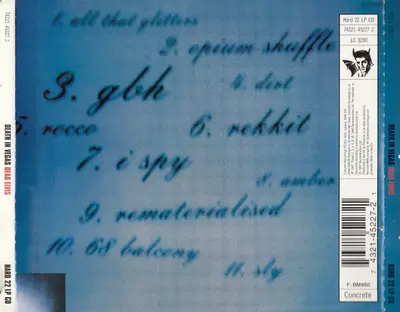 1. all that glitters
2. opium shuffle
3. gbh
4. dirt
5. rocco
6. rekkit
7. i spy
8. amber
9. rematerialised
10. 68 balcony
11. sly
Hard 22 LP CD
74321 45227 2
LC 6280
7 4321-45227-2 1
F: BM650
Concrete
74321 45227 2
DEATH IN VEGAS DEAD ELVIS
HARD 22 LP CD
74321 45227 2
DEATH IN VEGAS DEAD ELVIS
HARD 22 LP CD